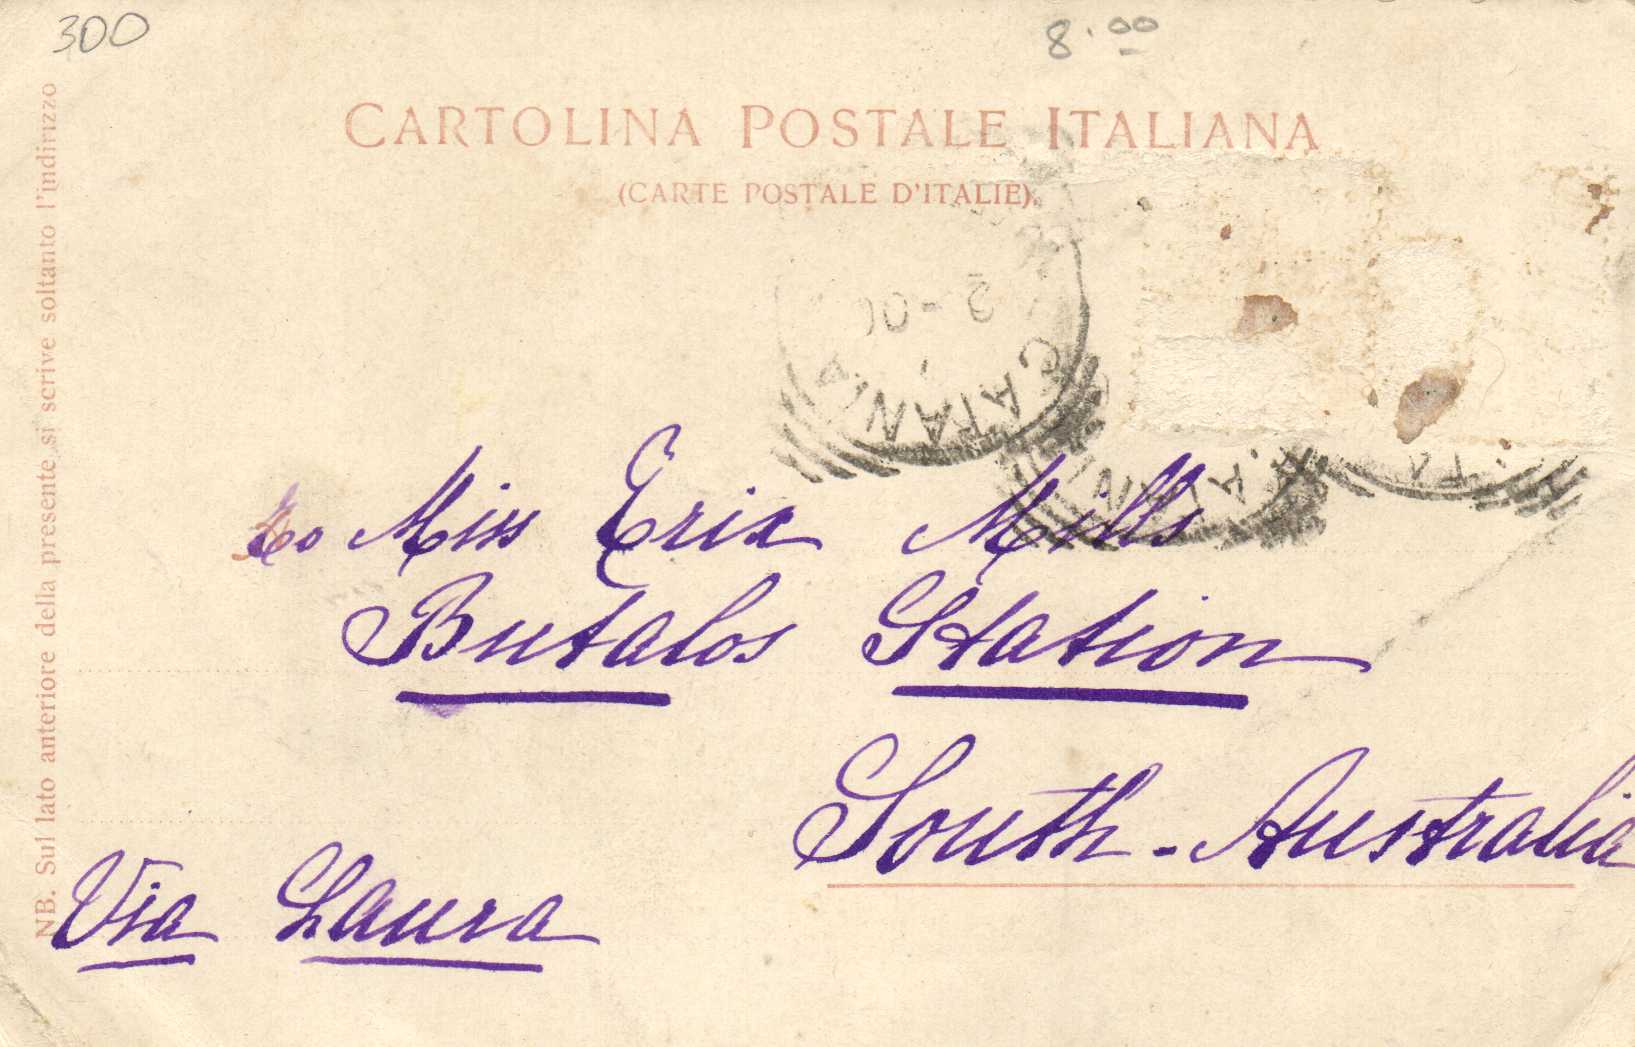 300
8.00
CARTOLINA POSTALE ITALIANA
(CARTE POSTALE D'ITALIE).
NB. Sul lato anteriore della presente si scrive soltanto l'indirizzo
CATANIA
To Miss Erix Mills
Butalos Station
South-Australia
Via Laura